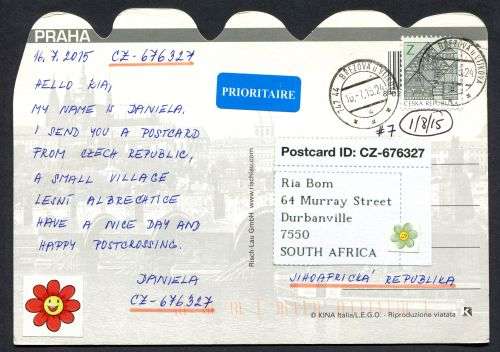 PRAHA
16. 7. 2015 CZ-676327
HELLO KIA,
MY NAME IS DANIELA.
I SEND YOU A POSTCARD
FROM CZECH REPUBLIC,
A SMALL VILLAGE
LESNÍ ALBRECHTICE
HAVE A NICE DAY AND
HAPPY POSTCROSSING.
DANIELA
CZ-676327
PRIORITAIRE
Z
ČESKÁ REPUBLIKA
747 44 BŘEZOVÁ U VÍTKOVA
#7 1/8/15
Postcard ID: CZ-676327
Ria Bom
64 Murray Street
Durbanville
7550
SOUTH AFRICA
JIHOAFRICKÁ REPUBLIKA
Risch-Lau GmbH www.rischlau.com
© KINA Italia/L.E.G.O. - Riproduzione vietata